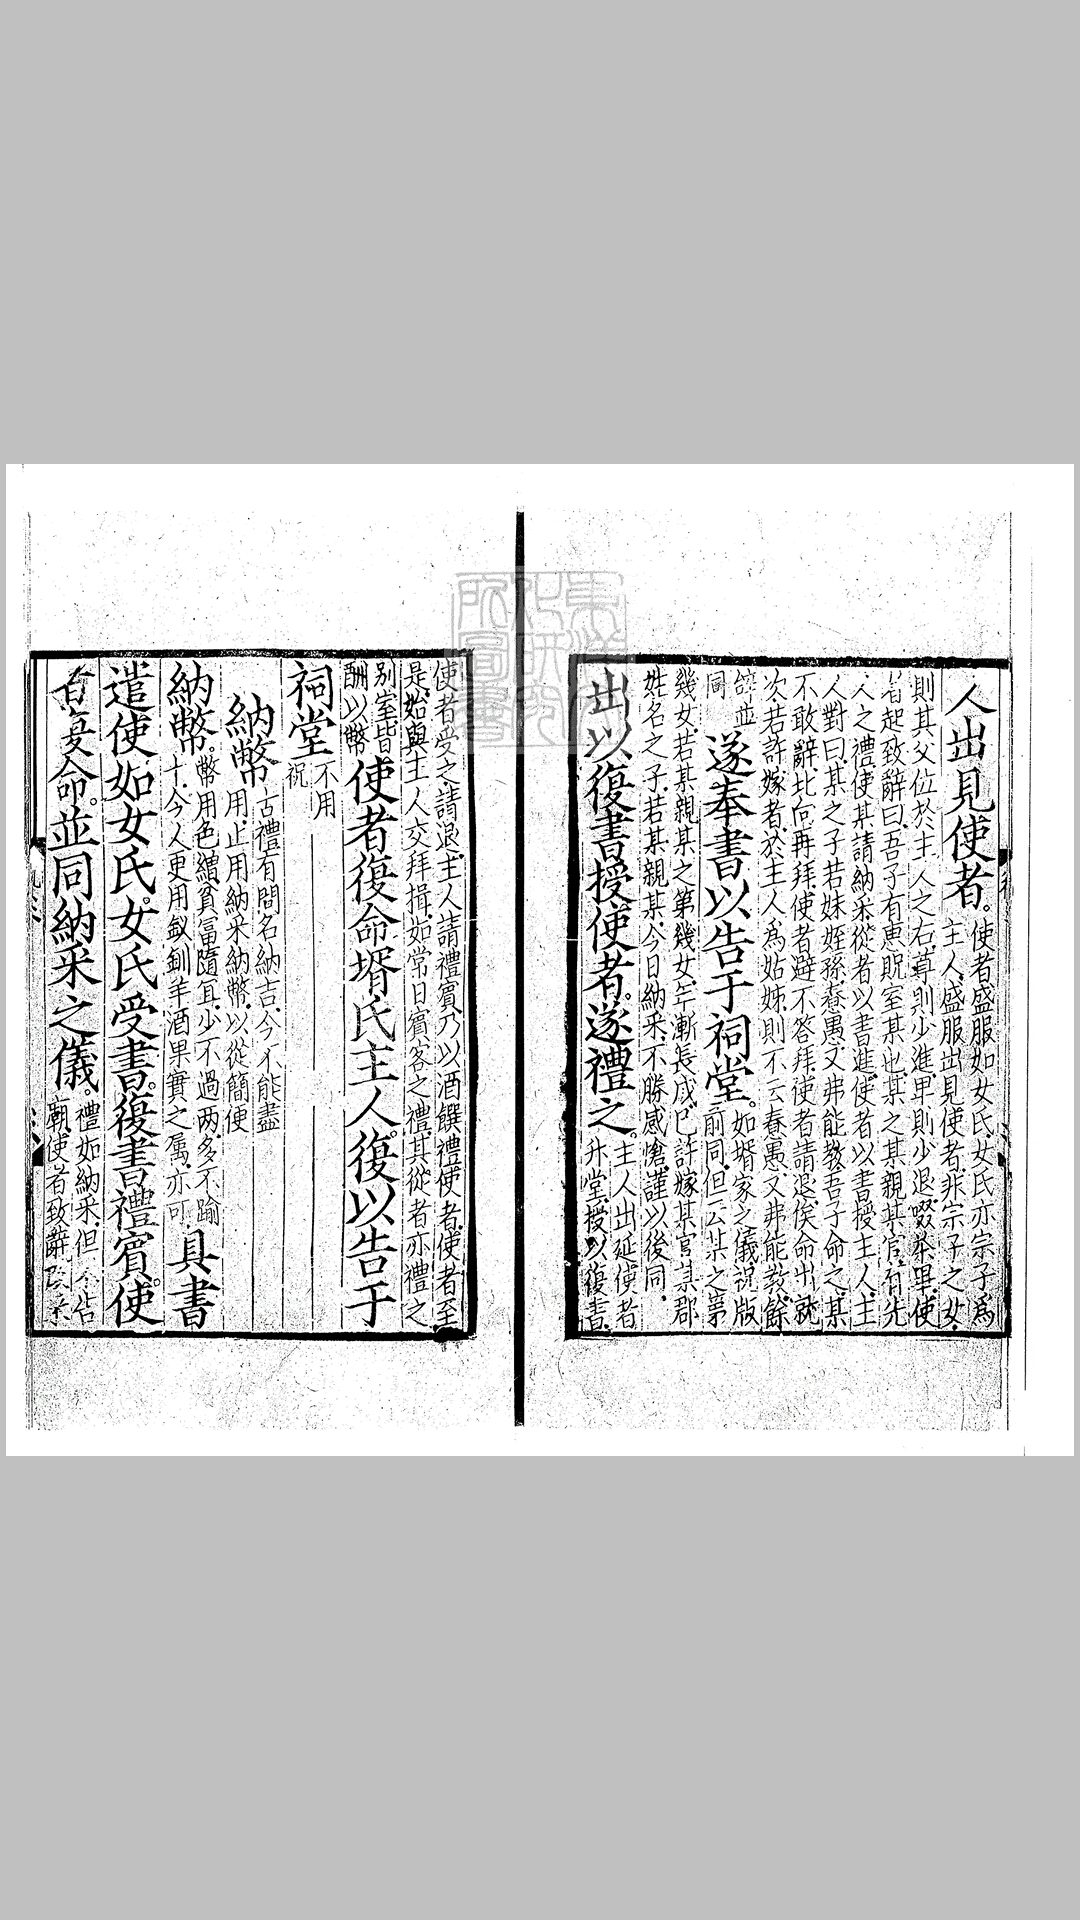 人出見使者。使者盛服如女氏、女氏亦宗子為
主人、盛服出見使者、非宗子之女、
則其父位於主人之右、尊則少進、卑則少退、啜茶畢、使
者起致辭曰、吾子有惠貺室某也、某之某親某官、有先
人之禮、使某請納采、從者以書進、使者以書授主人、主
人對曰、某之子若妹姪孫、惷愚、又弗能教、吾子命之、某
不敢辭、北向再拜、使者避不答拜、使者請退俟命、出就
次、若許嫁者、於主人為姑姊、則不云惷愚又弗能教、餘
辭並
同
遂奉書以告于祠堂。如壻家之儀、祝版
前同、但云某之第
幾女、若某親某之第幾女、年漸長成、已許嫁某官某郡
姓名之子、若某親某、今日納采、不勝感愴、謹以後同、
出以復書授使者。遂禮之。主人出延使者
升堂、授以復書、
使者受之、請退、主人請禮賓、乃以酒饌禮使者、使者至
是、始與主人交拜揖、如常日賓客之禮、其從者亦禮之
別室、皆
酬以幣
使者復命壻氏主人。復以告于
祠堂不用
祝
納幣古禮有問名納吉、今不能盡
用、止用納采納幣、以從簡便
納幣。幣用色繒、貧富隨宜、少不過兩、多不踰
十、今人更用釵釧羊酒果實之屬、亦可、
具書
遣使如女氏。女氏受書。復書禮賓。使
者復命。並同納采之儀。禮如納采、但不告
廟、使者致辭、改采